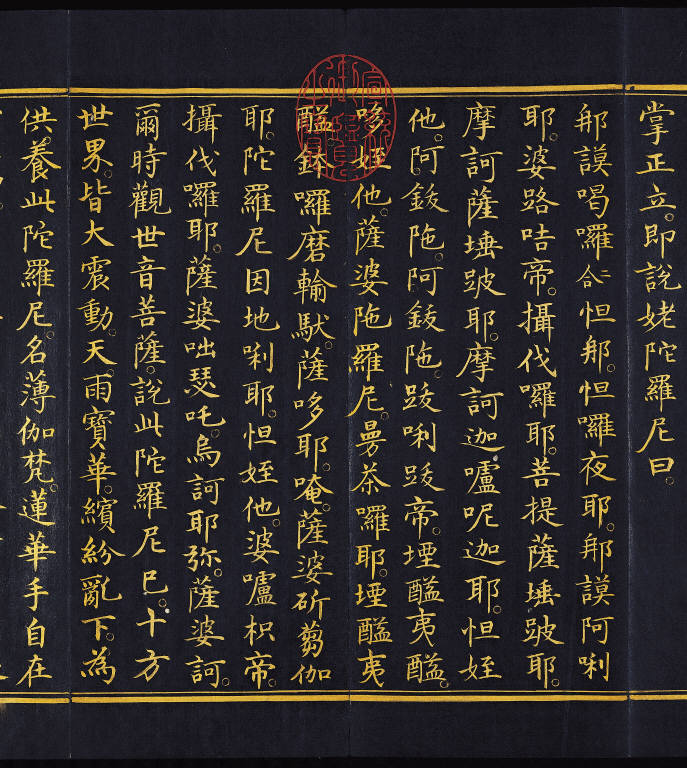 掌正立。即說姥陀羅尼曰。
那謨喝囉二合怛那。怛囉夜耶。那謨阿唎
耶。婆路咭帝。攝伐囉耶。菩提薩埵跛耶。
摩訶薩埵跛耶。摩訶迦嚧呢迦耶。怛姪
他。阿鈸陁。阿鈸陁。跋唎跋帝。堙醯夷醯。
哆姪他。薩婆陁羅尼。曼茶囉耶。堙醯夷
醯鉢囉磨輸馱。薩哆耶。唵。薩婆斫蒭伽
耶。陀羅尼因地唎耶。怛姪他。婆嚧枳帝。
攝伐囉耶。薩婆咄瑟吒。烏訶耶弥。薩婆訶。
爾時觀世音菩薩。說此陀羅尼已。十方
世界。皆大震動。天雨寶華。繽紛亂下。為
供養此陀羅尼。名薄伽梵。蓮華手自在